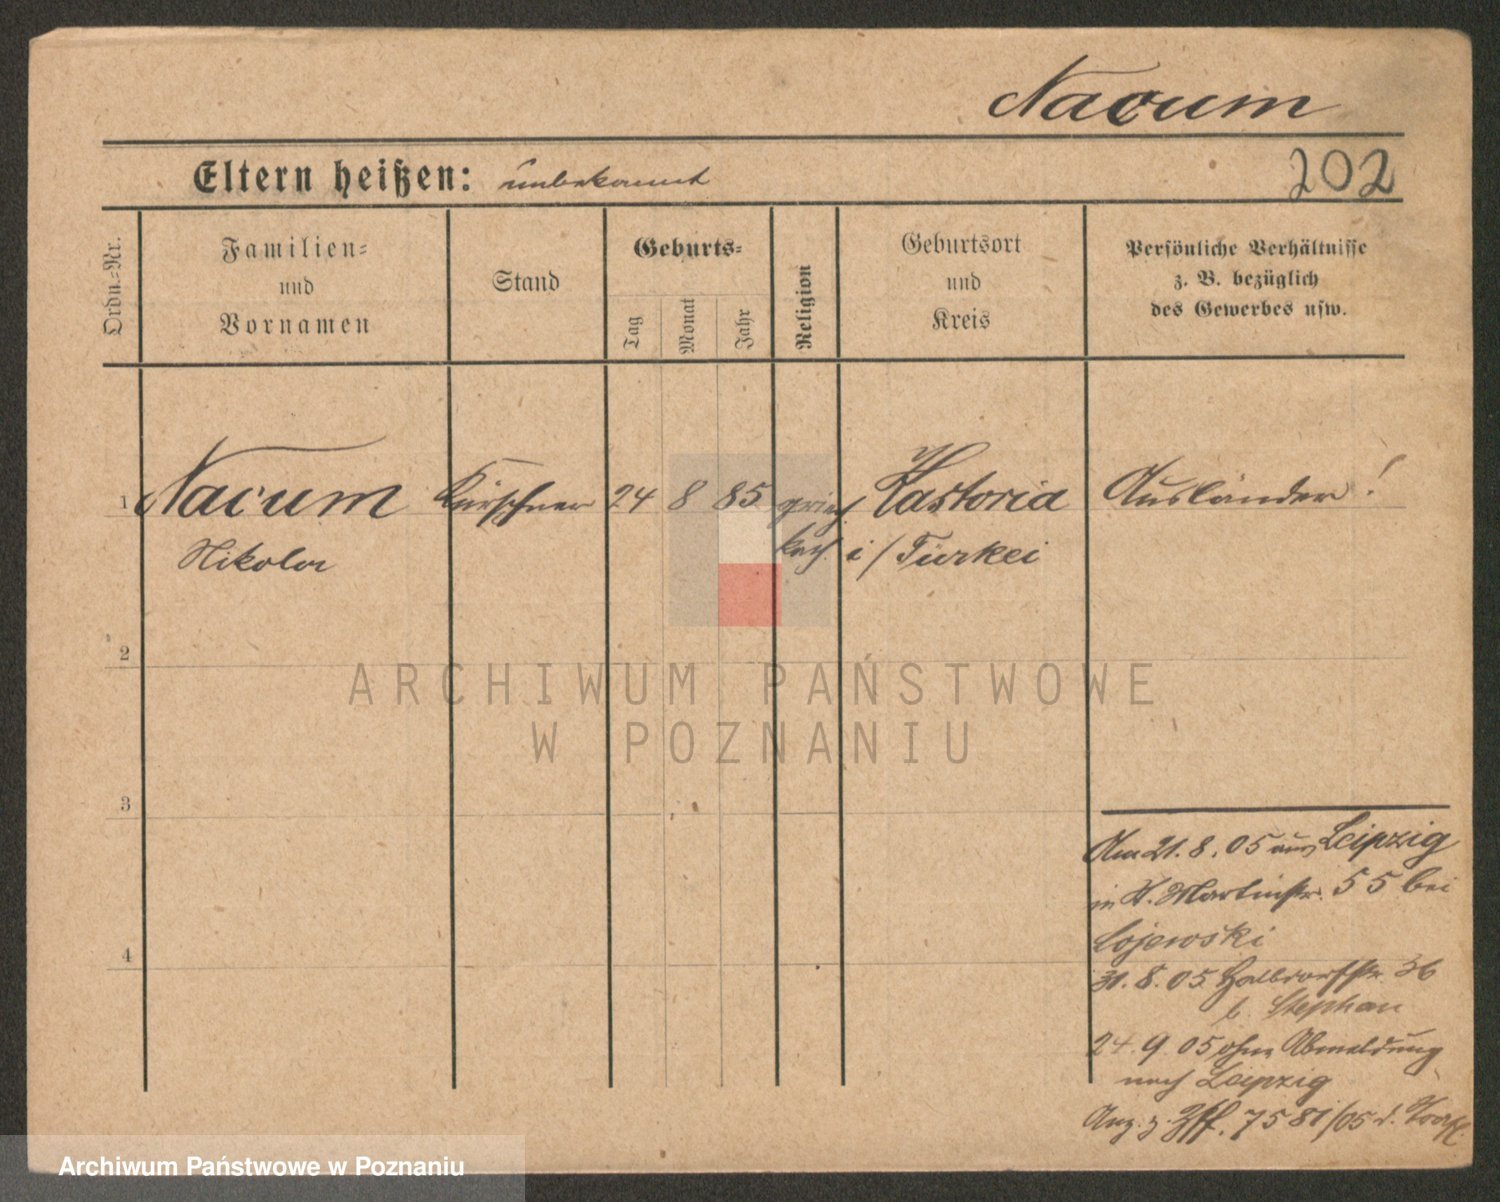 Nacum
Eltern heißen: unbekannt
202
Ordn.-Nr.
Familien-
und
Vornamen
Stand
Geburts-
Tag
Monat
Jahr
Religion
Geburtsort
und
Kreis
Persönliche Verhältnisse
z. B. bezüglich
des Gewerbes usw.
1 Nacum Kürschner 24 8 85 griech Kastoria Ausländer!
Nikolai kath. i/Türkei
2
3
4
Am 21.8.05 aus Leipzig
in St. Martinstr. 55 bei
Lojewski
31.8.05 Halbdorfstr. 36
b. Stephan
24.9.05 ohne Abmeldung
nach Leipzig
Anz. z. 7581/05
ARCHIWUM PAŃSTWOWE
W POZNANIU
Archiwum Państwowe w Poznaniu